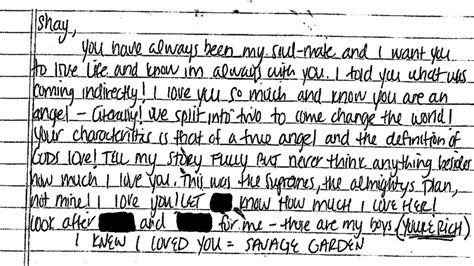 Shay,
you have always been my soul-mate and I want you
to live life and know im always with you. I told you what was
coming indirectly! I love you so much and know you are an
angel - literally! We split into two to come change the world!
your characteristics is that of a true angel and the definition of
GODS love! TELL MY STORY FULLY BUT never think anything besides
how much I love you. This was the supremes, the almightys plan,
not mine! I love you! LET know HOW MUCH I LOVE HER!
look after and for me - those are my boys (YOU'RE RICH)
I KNEW I LOVED YOU = SAVAGE GARDEN